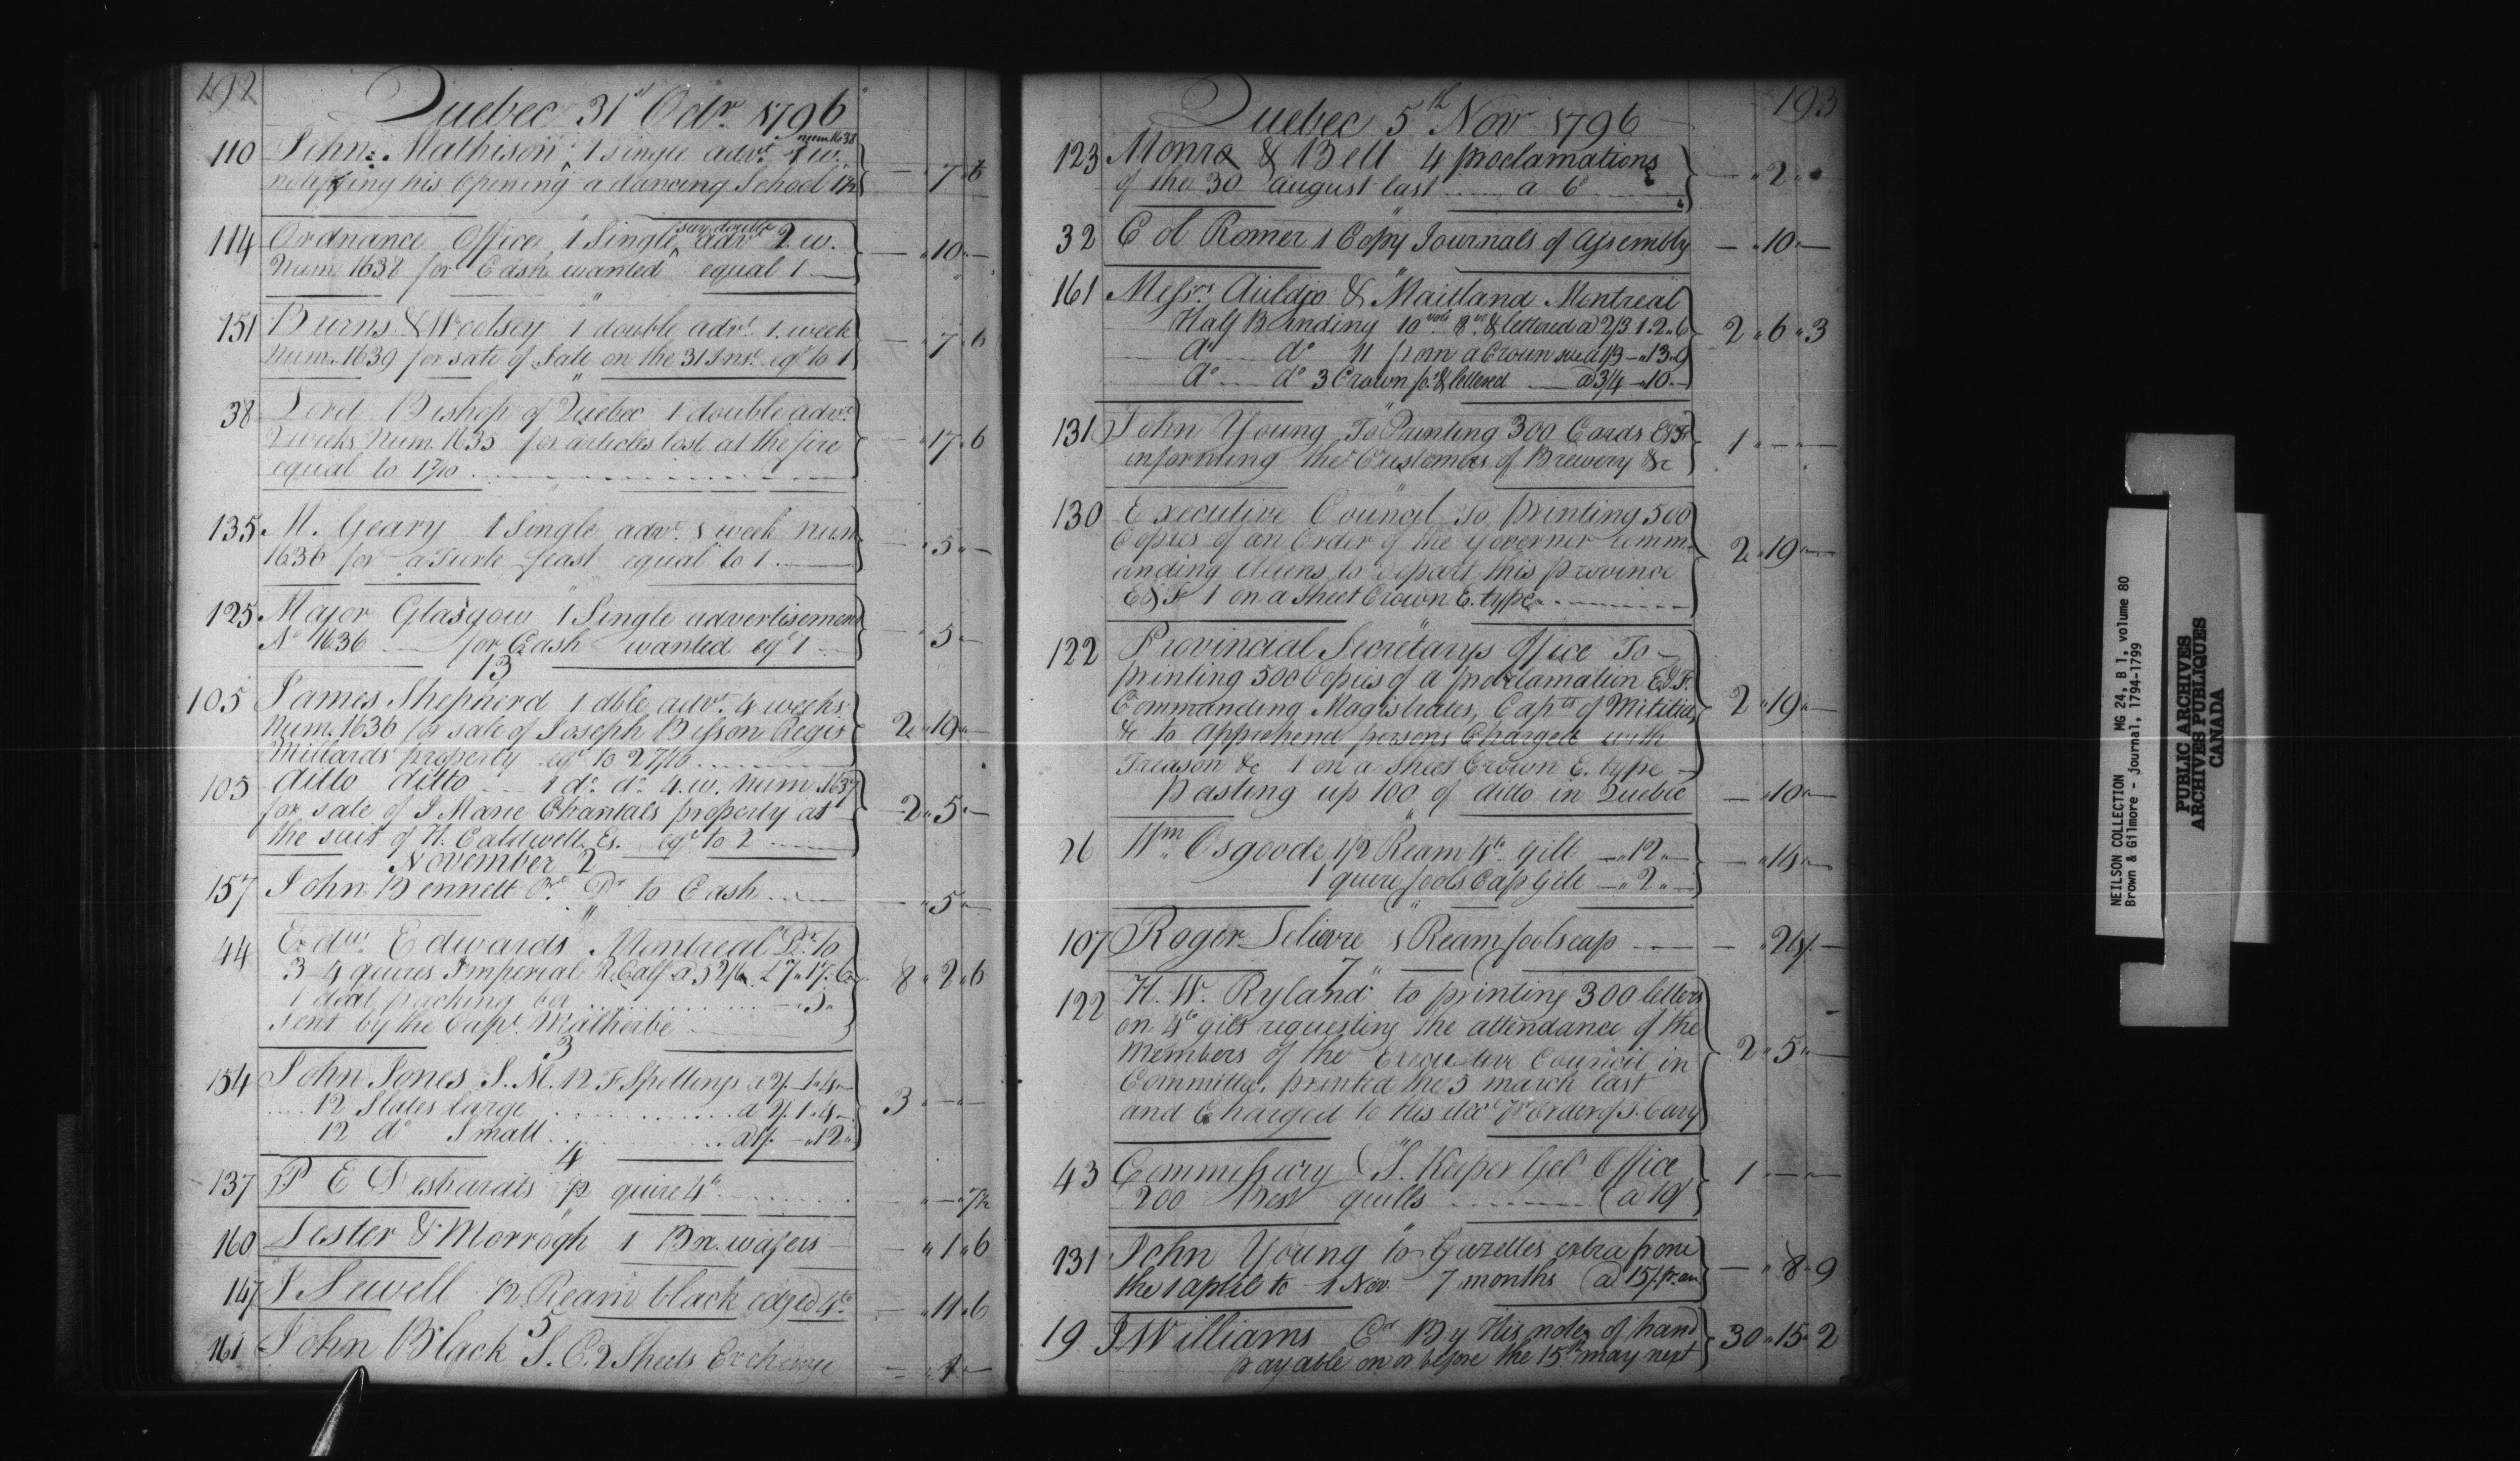 192
Quebec 31st Octr. 1796
110 John Mathison 1 single advt. 1 w. num 1638
notifying his Opening a dancing School 1½ } — " 7 " 6
114 Ordnance Office 1 Single, say double advt 2 w.
Num 1638 for Cash wanted equal 1 — } — " 10 " —
151 Burns & Woolsey 1 double advt. 1. week
Num. 1639 for sate of Sale on the 31 Inst. eql to 1 } — " 7 " 6
38 Lord Bishop of Quebec 1 double advt.
2 weeks Num. 1635 for articles lost at the fire
equal to 1 7/10 } — " 17 " 6
135 M. Geary 1 Single advt. 1 week num
1636 for a Turle feast equal to 1 } — " 5 " —
125 Major Glasgow 1 Single advertisemen
No 1636 for Cash wanted eql 1 } — " 5 " —
13
105 James Shepherd 1 dble advt. 4 weeks
Num. 1636 for sale of Joseph Bisson Regis
Millards property eql to 2 7/10 } 2 " 19 " —
105 ditto ditto 1 do. do. 4. w. num. 1637
for sale of J Marie Chantals property at
the suit of H. Caldwell Es. eql to 2 } 2 " 5 " —
November 2
157 John Bennett Dr to Cash — " 5 " —
44 Edwd. Edwards Montreal Dr. to
3 – 4 quires Imperial R. Calf a 52/6 £ 7 " 17 " 6
1 deal packing box — " 5 "
sent by the Capt. Matherbe } 8 " 2 " 6
3
154 John Jones S. M. 12 F Spellings a 2/. 1 " 4 " —
12 Slates large a 2/. 1 " 4 " —
12 do Small a 1/. — " 12 " } 3 " — " —
4
137 P. E Desbarats ½ quire 4to — " — " 7½
160 Lester & Morrogh 1 Bx. wafers — " 1 " 6
147 J Sewell ½ Ream black edged 4to. — " 11 " 6
5
161 John Black S. C. 2 Sheets Exchange — " 1 " —
193
Quebec 5th Nov 1796
123 Monro & Bell 4 proclamations
of the 30 august last a 6d } — " 2 " —
32 C d Romer 1 Copy Journals of Assembly — " 10 " —
161 Messrs. Auldjo & Maitland Montreal
Half Binding 10 vols 8vo. & lettered a 2/3 1 " 2 " 6
do do 11 from a Crown size a 1/3 — " 13 " 9
do do 3 Crown fo. & lettered a 3/4 — " 10 " — } 2 " 6 " 3
131 John Young To Printing 300 Cards E&F
informing the Customers of Brewery &c } 1 " — " —
130 Executive Council To printing 500
Copies of an Order of the Governor comm-
anding aliens to depart this province
E&F 1 on a Sheet Crown E. type } 2 " 19 " —
122 Provincial Secretarys Office To —
printing 500 Copies of a proclamation E&F.
Commanding Magistrates, Capts of Mititia
&c to apprehend persons Charged with
Treason &c 1 on a Sheet Crown E. type — } 2 " 19 " —
pasting up 100 of ditto in Quebec — " 10 " —
26 Wm. Osgoode 1/2 Ream 4to gilt — " 12 " —
1 quire foolsCap Gilt — " 2 " — } — " 14 " —
107 Roger Lelievre 1 Ream foolscap — — " 24/. —
7
122 H. W. Ryland to printing 300 letters
on 4to gilt requesting the attendance of the
Members of the Executive Council in
Committee, printed the 5 march last
and Charged to this acct pr Order of T. Cary } 2 " 5 " —
43 Commissary & S. Keeper Genl Office
200 best quills (a 10/ } 1 " — " —
131 John Young to Gazettes extra from
the 1 aplil to 1 Nov. 7 months (a) 15/. pr. an. } — " 8 " 9
19 J Williams Cr By His note of hand
payable on or before the 15th may next } 30 " 15 " 2
NEILSON COLLECTION MG 24, B 1, volume 80
Brown & Gilmore - journal, 1794-1799
PUBLIC ARCHIVES
ARCHIVES PUBLIQUES
CANADA